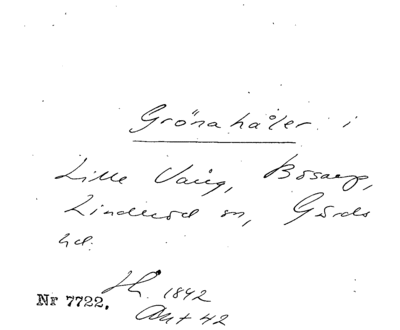 Gröna håler i
Lille Vång, Bosarp,
Linderöd sn, Gärds
hd.
Nr 7722. 1842
Akt 42